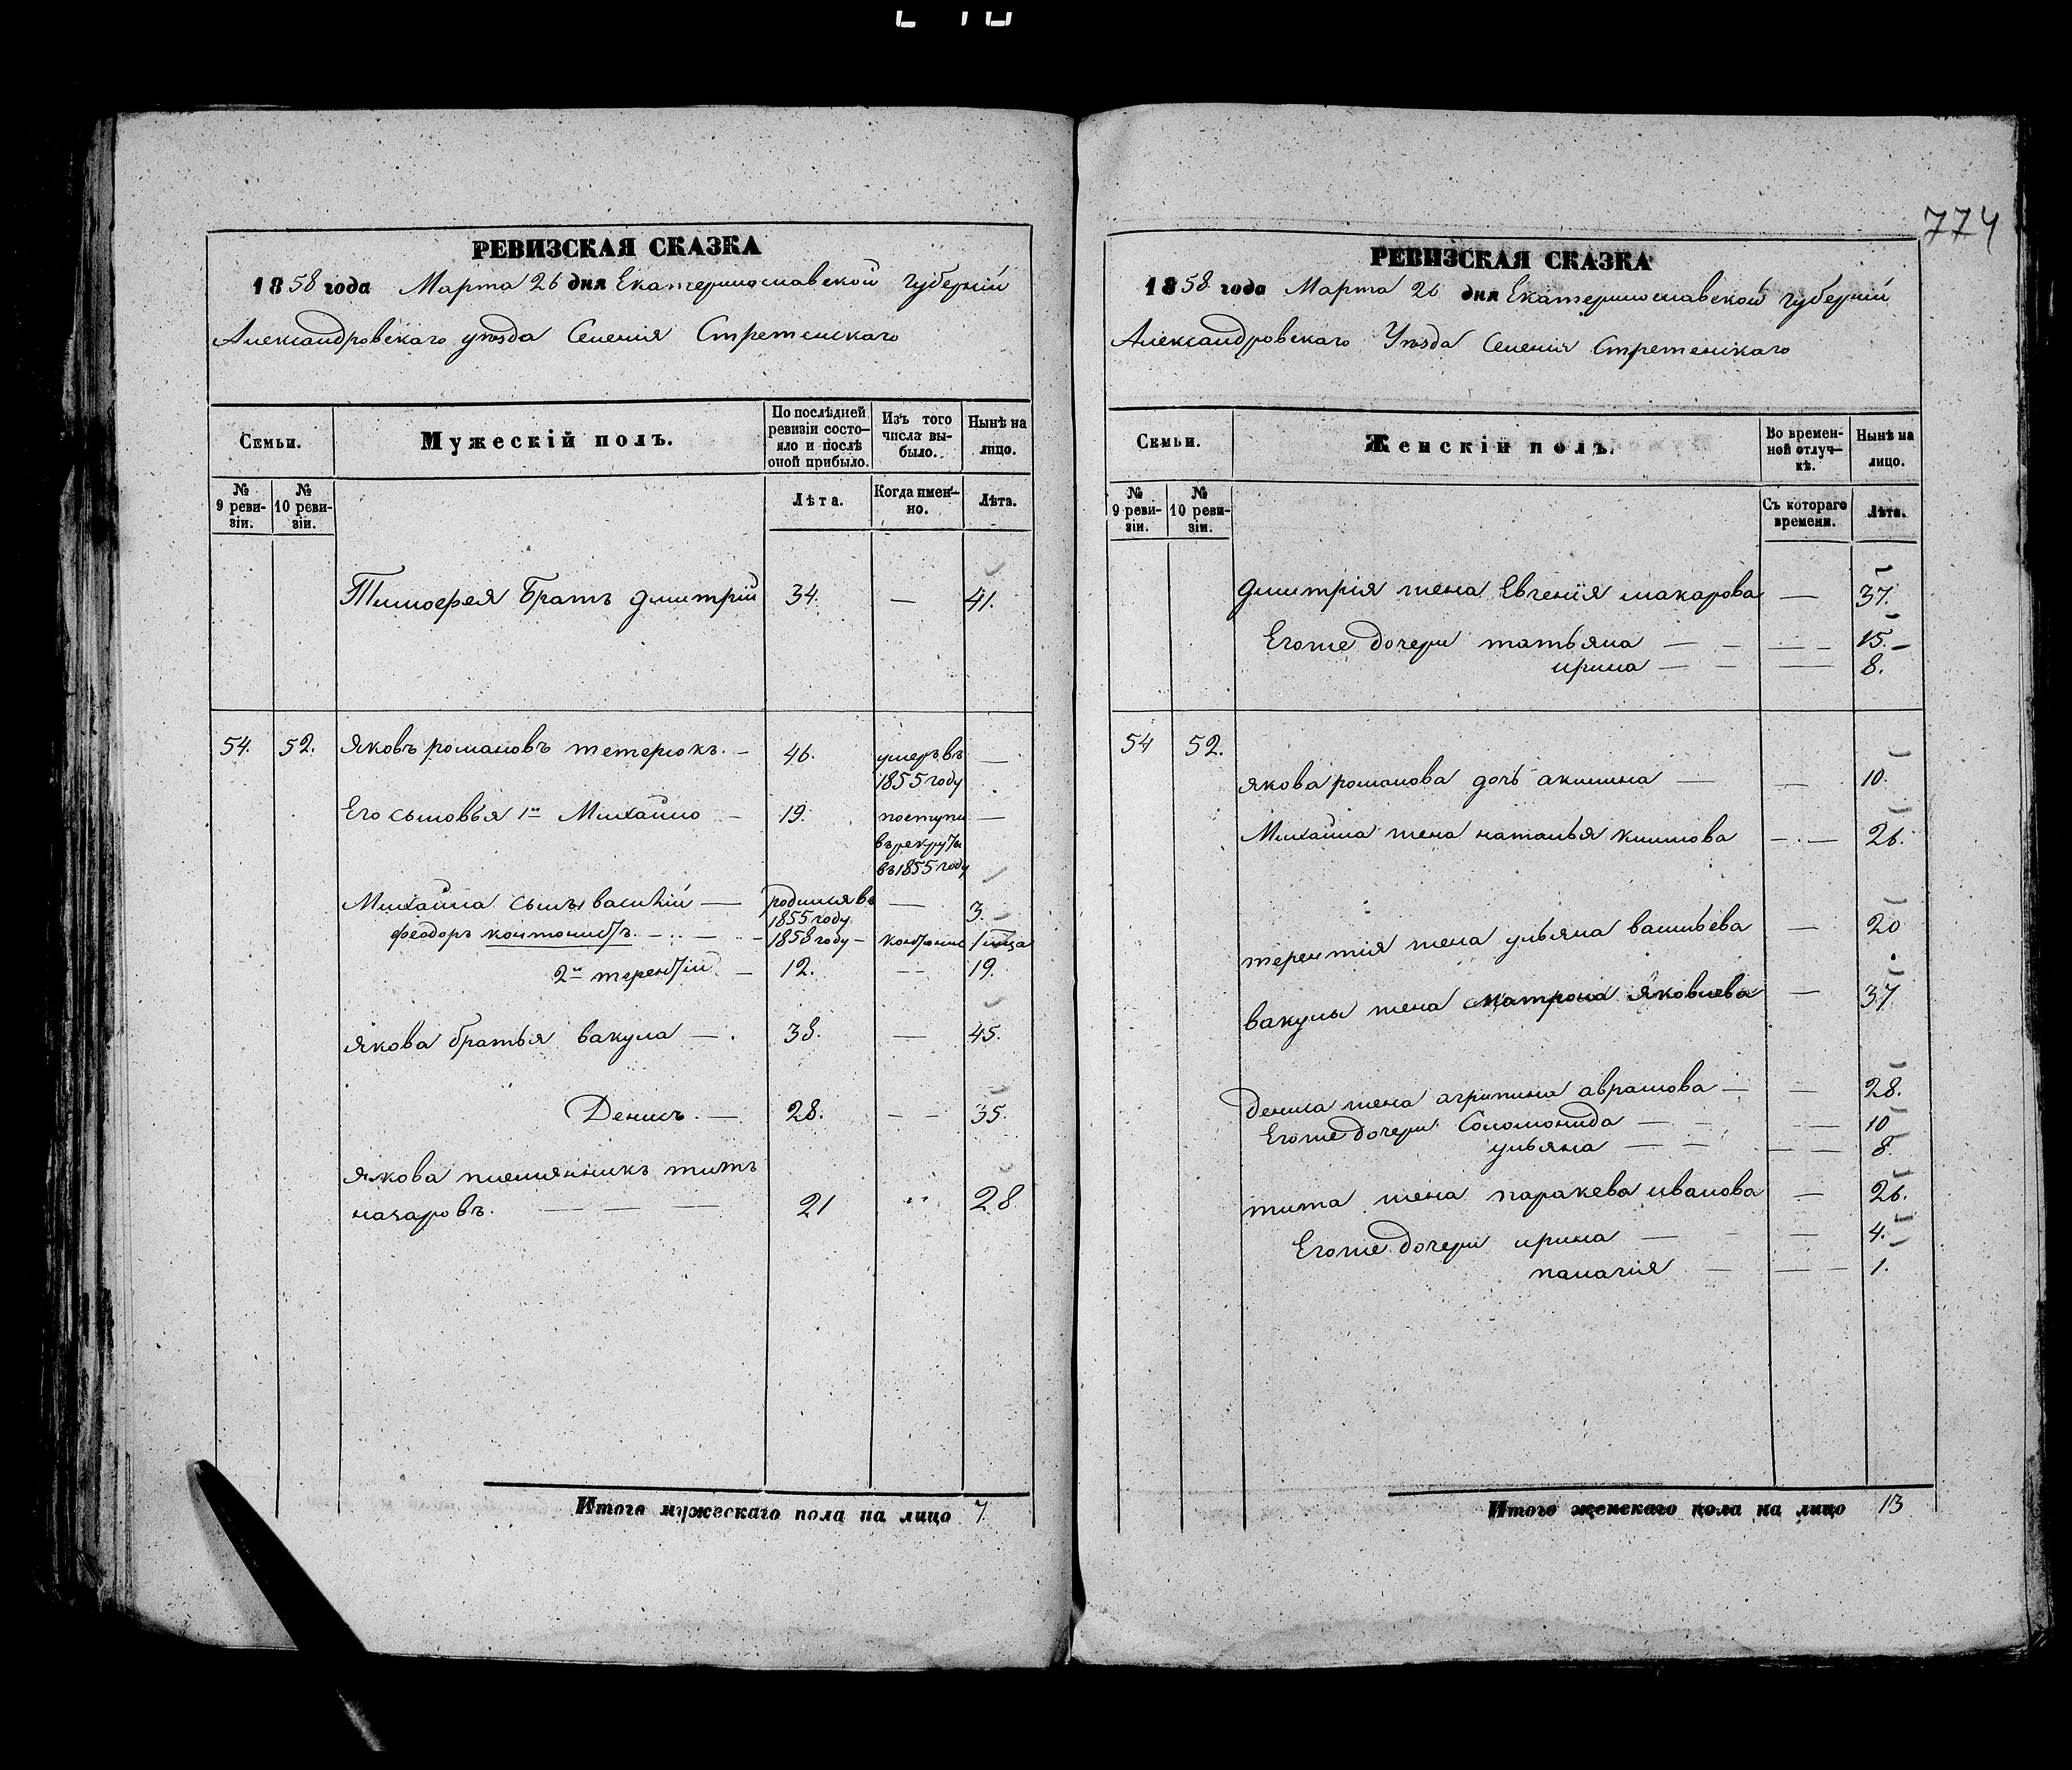 РЕВИЗСКАЯ СКАЗКА
1858 года Марта 26 дня Екатеринославской губерніи
Александровскаго уѣзда Селенія Стретенскаго
Семьи.
Мужескій полъ.
По послѣдней ревизіи состо-
яло и послѣ оной прибыло.
Изъ того числа вы-
было.
Нынѣ на лицо.
№ 9 реви-
зіи.
№ 10 реви-
зіи.
Лѣта.
Когда имен-
но.
Лѣта.
Тимофея Братъ Дмитрій 34. — 41.
54. 52. Яковъ романовъ тетерюкъ. — 46. умеръ въ 1855 году —
Его сыновья 1й Михайло — 19. поступи въ рекруты въ 1855 году —
Михайла сынъ василій — родился въ 1855 году. — 3.
феодоръ кантонистъ. — 1858 году — 1 мца
2й терентій — 12. — 19.
якова братья вакула — 38. — 45.
Денисъ. — 28. — — 35.
якова племянникъ титъ
назаровъ. — — — 21 " 28
Итого мужескаго пола на лицо 7
774
РЕВИЗСКАЯ СКАЗКА
1858 года Марта 26 дня Екатеринославской губерніи
Александровскаго Уѣзда Селенія Стретенскаго
Семьи.
Женскій полъ.
Во времен-
ной отлуч-
кѣ.
Нынѣ на лицо.
№ 9 реви-
зіи.
№ 10 реви-
зіи.
Съ котораго времени.
Лѣта.
Дмитрія жена Евгенія макарова — 37.
Егоже дочери татьяна — — — 15.
ирина — — — 8.
54 52.
якова романова дочь акилина — — 10.
Михайла жена наталья климова — — 26.
терентія жена ульяна васильева — 20
вакулы жена матрона Яковлева — 37
дениса жена агрипина аврамова — — 28.
Егоже дочери Соломонида — — 10
ульяна — — — — 8.
тита жена паракева иванова — 26.
Егоже дочери ирина — — — 4.
палагія — — — 1.
Итого женскаго пола на лицо 13